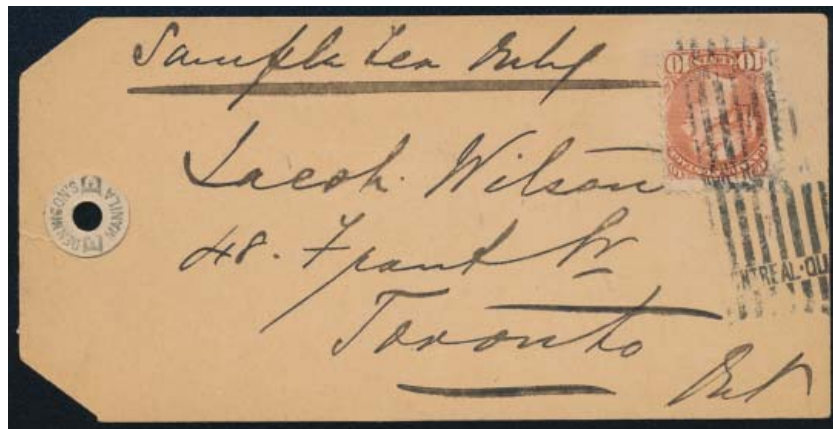 Sample Tea Only
Jacob. Wilson
48. Front St
Toronto
Ont
DENNISON'S
MANILA
10 CENTS 10
NTREAL·QU